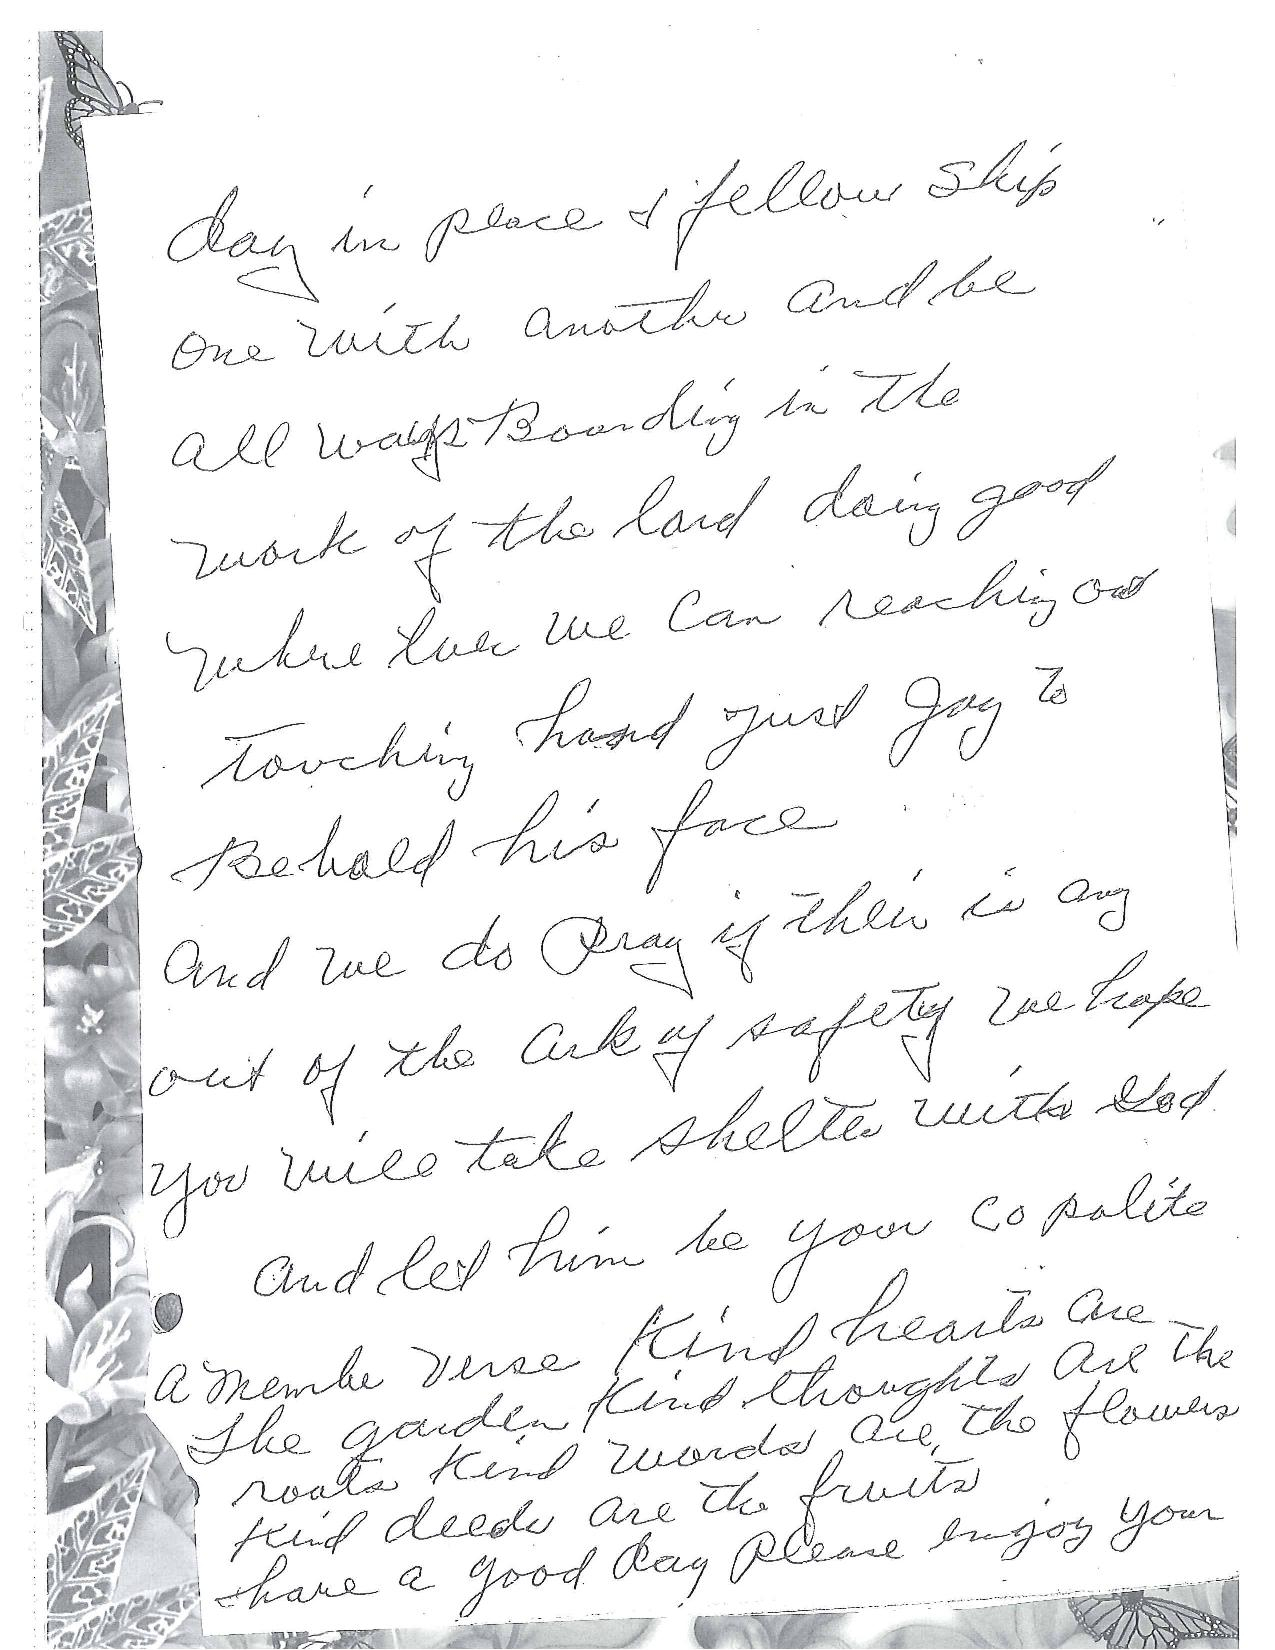 day in peace & fellow ship
one with another and be
all ways Bounding in the
work of the lord doing good
where ever we can reaching out
touching hand just Joy to
Behold his face
And we do Pray if their is any
out of the ark of safety we hope
you will take shelter with God
and let him be your co polite
A Membe verse Kind hearts are
the garden Kind thoughts are the
roots Kind words are the flowers
Kind deeds are the fruits
share a good day Please enjoy your